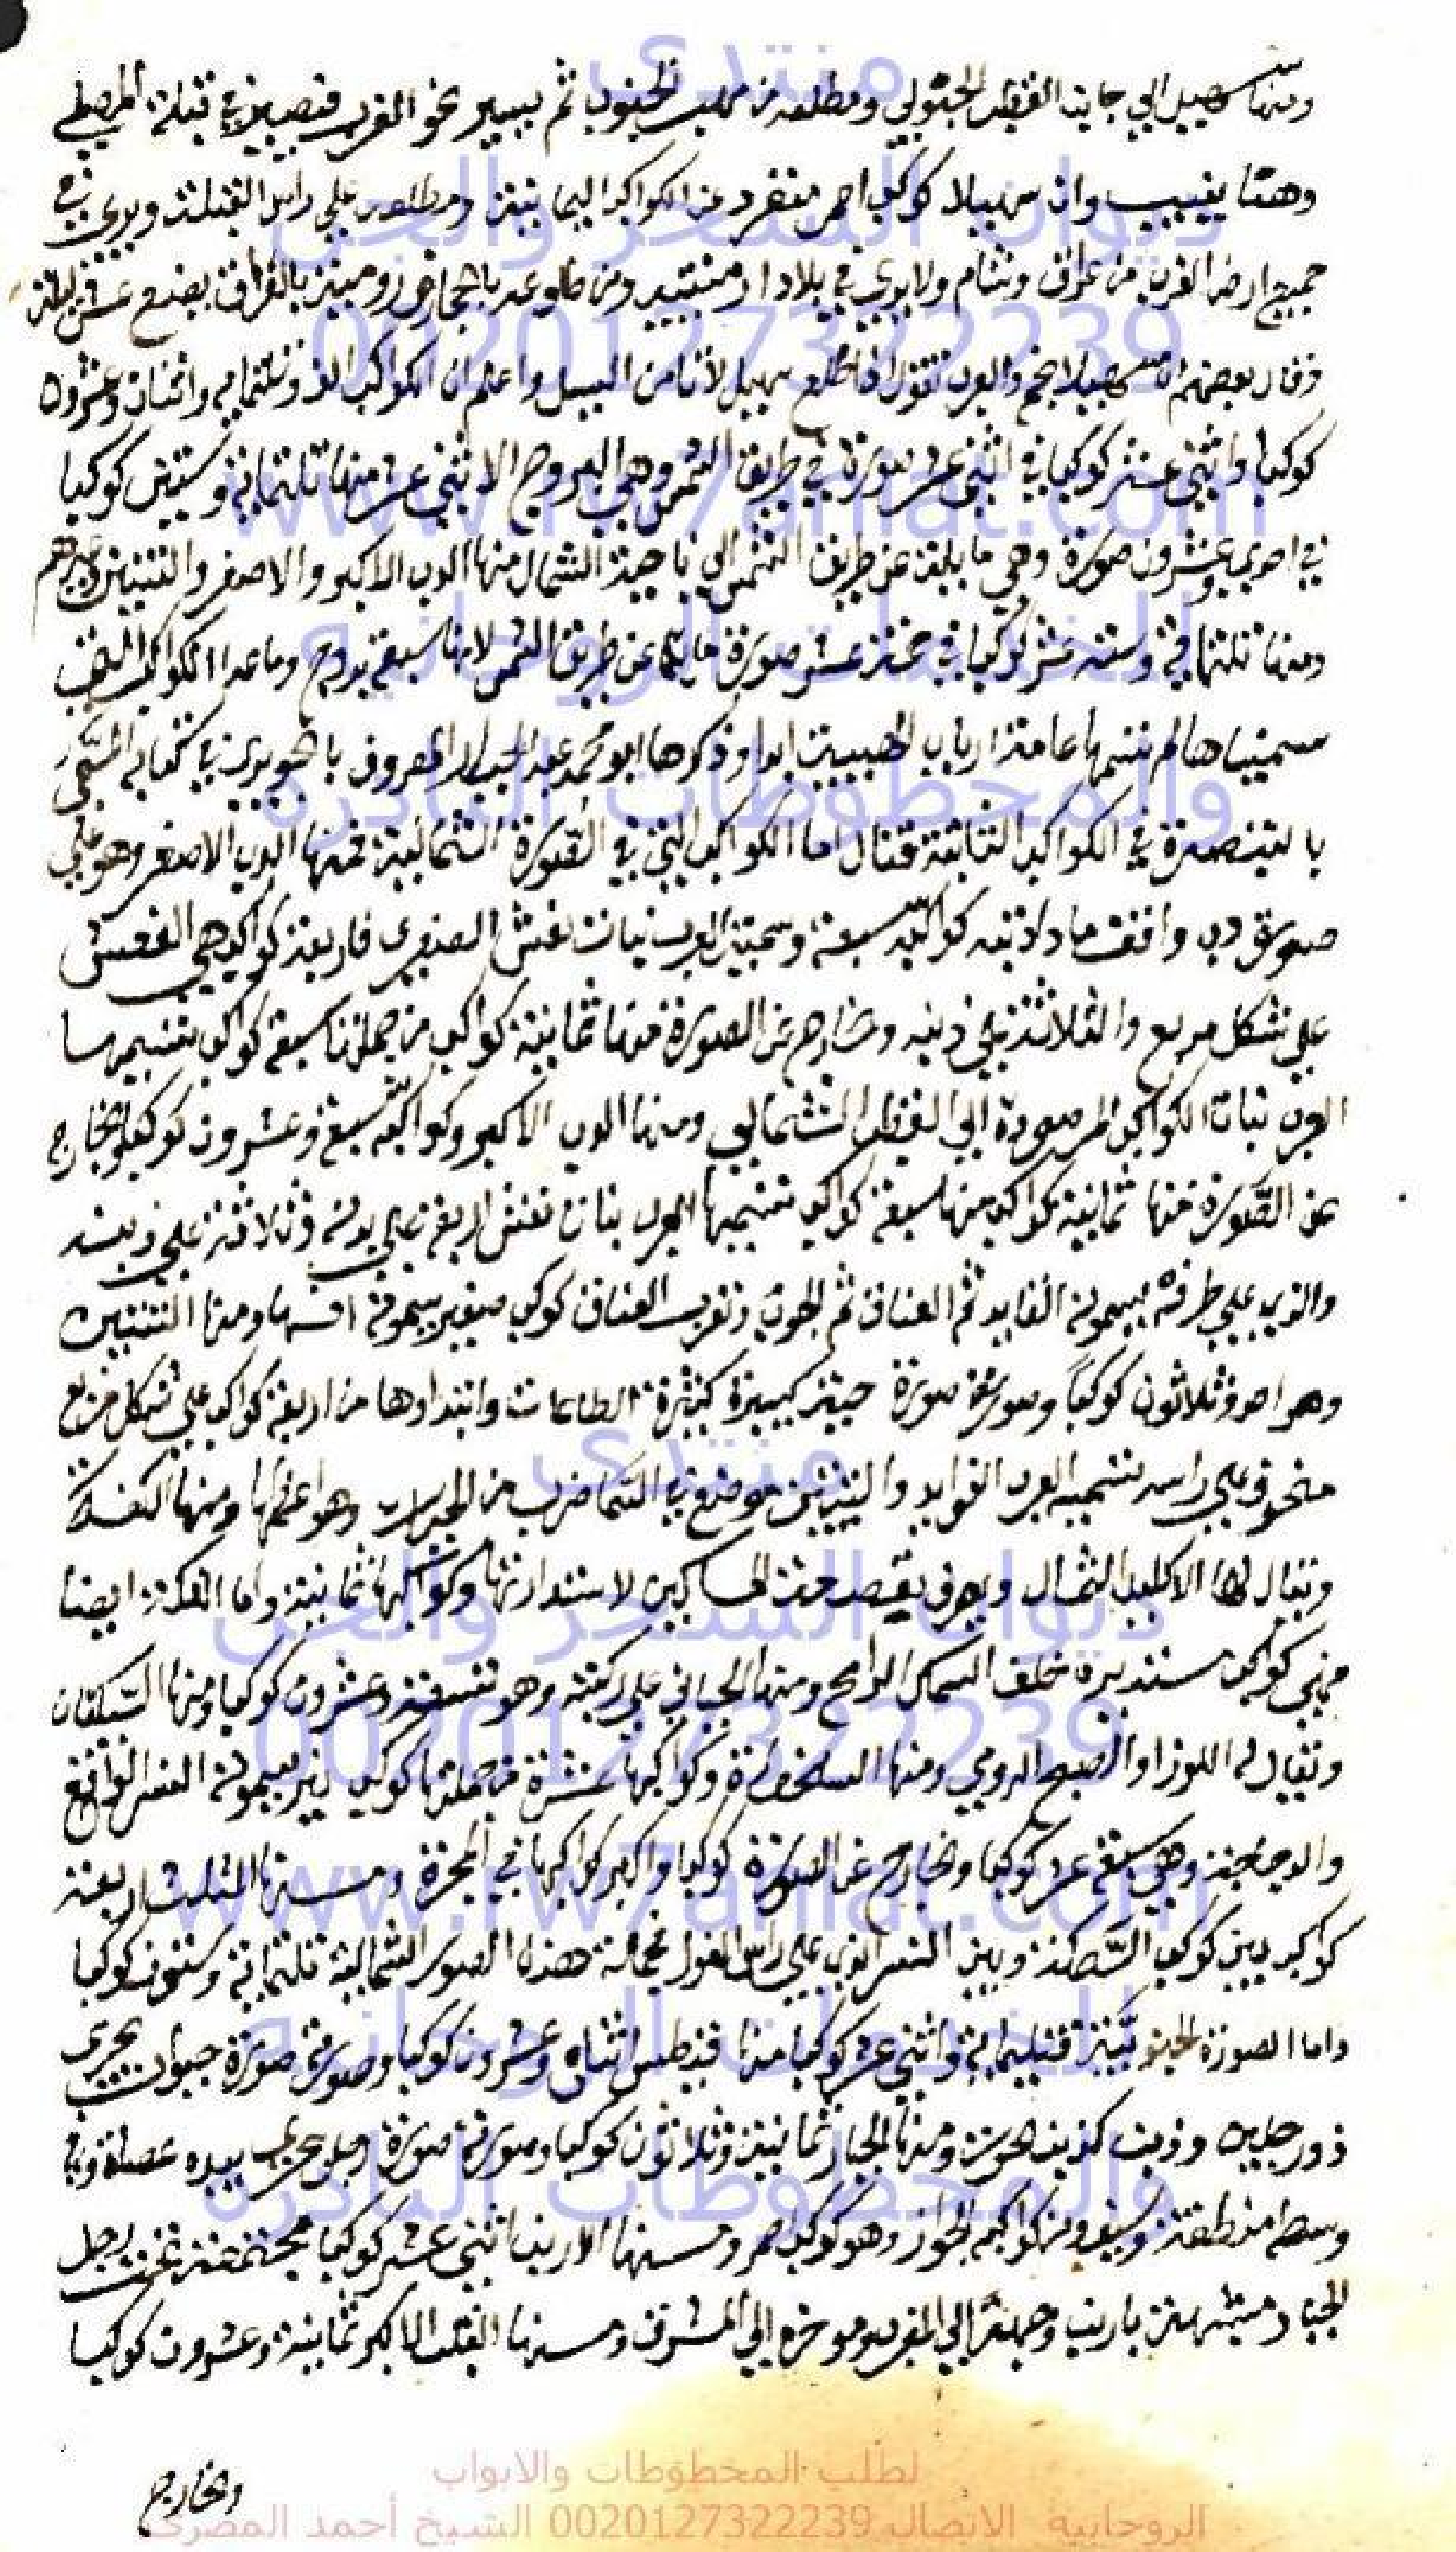 ومنها سهيل الي جانب القطب الجنوبي ومطلعه من مهب الجنوب ثم يسير نحو المغرب فيصير في قبلة المصلي
وهنا يغيب وان سهيلا كوكب احمر منفرد عن الكواكب اليمانية ومطلعه علي راس القبلة ويري في
جميع ارض العرب من عراق وشام ولا يري في بلاد ارمينية ومن طلوعه بالحجاز ورويته بالعراق بضع عشر ليلة
وقال بعضهم ان سهيلا نجم والعرب تقول اذا طلع سهيل لا تامن السيل واعلم ان الكواكب الف وثلثمايه واثنان وعشرون
كوكبا واثني عشر كوكبا في اثني عشر صورة في طريق الشمس وهي البروج الاثني عشر منها ثلثماية وستين كوكبا
في احدي وعشرون صورة وهي مايلة عن طريق الشمس الي ناحية الشمال منها الدب الاكبر والاصغر والتنين وغيرهم
ومنها ثلثماية وستة عشر كوكبا في خمسة عشر صورة مايلة عن طريق الشمس لانها سبعة بروج وما عدا الكواكب التي
سميناها لم تسمها عامة ارباب ابدا وذكرها ابو محمد عبد الجبار المعروف في كتابه المسمي
بالتبصرة في الكواكب الثابتة فقال اما الكواكب التي في الصورة الشمالية فمنها الدب الاصغر وهو علي
صورة دب واقف كواكبه سبعة وسمته العرب بنات نعش الصغري فاربعة كواكب هي النعش
علي شكل مربع والثلاثة علي ذنبه وخارج عن الصورة منها ثمانية كواكب من جملتها سبعة كواكب تسميها
العرب بنات الكواكب الي القطب الشمالي ومنها الدب الاكبر وكواكبه سبعة وعشرون كوكبا والخارج
عن الصورة منها ثمانية كواكب منها سبعة كواكب تسميها العرب بنات نعش اربعة علي بدنه وثلاثة علي ذنبه
والذي علي طرفه يسموه القايد ثم العناق ثم الحور وبقرب العناق كوكب صغير يسموه السها ومنها التنين
وهو احد وثلاثون كوكباً وصورته صورة حية كبيرة كثيرة وابتداوها من اربعة كواكب علي شكل مربع
منحرف علي راسه تسميه العرب العوايد والتنين موضع في السما ضرب من الحيات وهو اعظمها ومنها الفكة
ويقال لها الاكليل الشمالي ويعرف بقصعة المساكين لاستدارتها وكواكبها ثمانية واما الفكة ايضا
فهي كواكب مستديرة خلف السماك الرامح ومنها الجاثي علي ركبته وهو تسعة وعشرون كوكبا ومنها السلياق
ويقال له اللوزا والصنج الرومي ومنها السلحفاة وكواكبها عشرة من جملتها كوكب نير يسموه النسر الواقع
والدجاجة وهي سبعة عشر كوكبا والخارج عن الصورة كوكبا واكبر كواكبها في المجرة ومنها المثلث اربعة
كواكب بين كوكب السمكة وبين النسر الذي علي راس الغول فجملة هذه الصور الشمالية ثلثماية وستون كوكبا
واما الصورة الجنوبية واثني عشر كوكبا منها قيطس اثنان وعشرون كوكبا وصورته صورة حيوان بحري
ذو رجلين وذنب كذنب الحوت ومنها الجبار ثمانية وثلاثون كوكبا وصورته صورة رجل بيده عصاة وفي
وسطه منطقة وسيف ومن كواكبه الجوزا وهو كوكب احمر ومنها الارنب اثني عشر كوكبا مجتمعة تحت رجل
الجبار مشبهة بارنب وجهه الي المغرب وموخره الي المشرق ومنها الكلب الاكبر ثمانية وعشرون كوكبا
والخارج
منتدى
ديوان السحر والجن
00201273222239
www.rw7aniat.com
للخدمات الروحانيه
والمخطوطات النادرة
منتدى
ديوان السحر والجن
00201273222239
www.rw7aniat.com
للخدمات الروحانيه
والمخطوطات النادرة
لطلب المخطوطات والابواب
الروحانية الاتصال 00201273222239 الشيخ أحمد المصرى